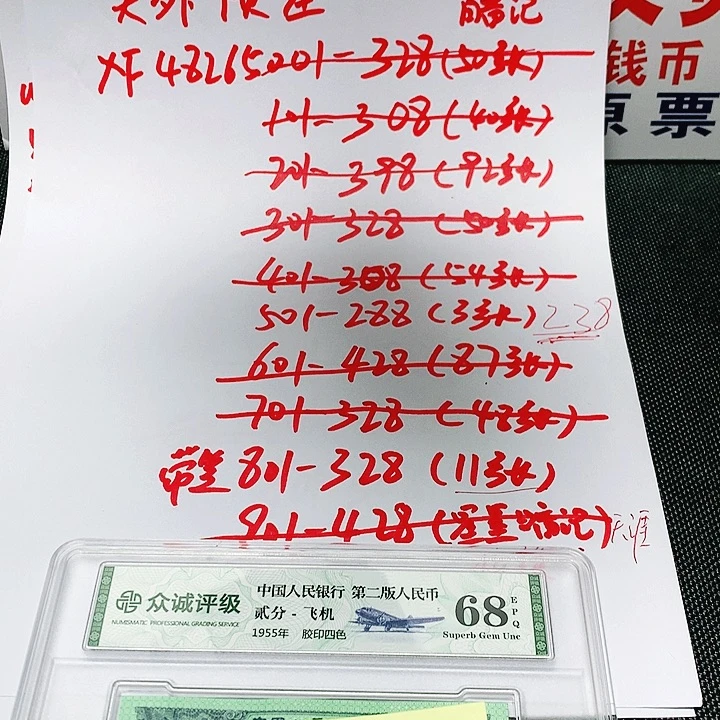 暗记
钱币
原票
XF48265001-328(50张)
101-308(40张)
201-398(92张)
301-328(50张)
401-308(54张)
501-288(3张)238
601-428(87张)
701-328(48张)
带荧801-328(11张)
901-428(荧暗记)天涯
众诚评级
NUMISMATIC PROFESSIONAL GRADING SERVICE
中国人民银行 第二版人民币
贰分 - 飞机
1955年 胶印四色
68 EPQ
Superb Gem Unc